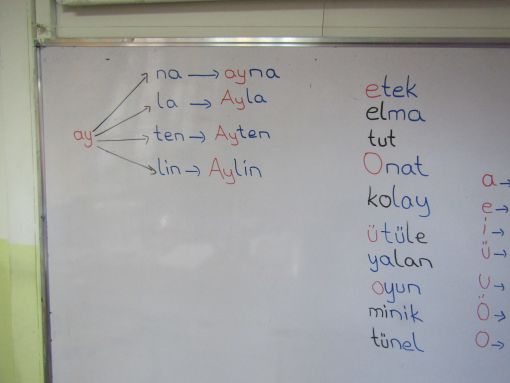 ay
na → ayna
la → Ayla
ten → Ayten
lin → Aylin
etek
elma
tut
Onat
kolay
ütüle
yalan
oyun
minik
tünel
a→
e→
i→
ü→
u→
Ö→
O→